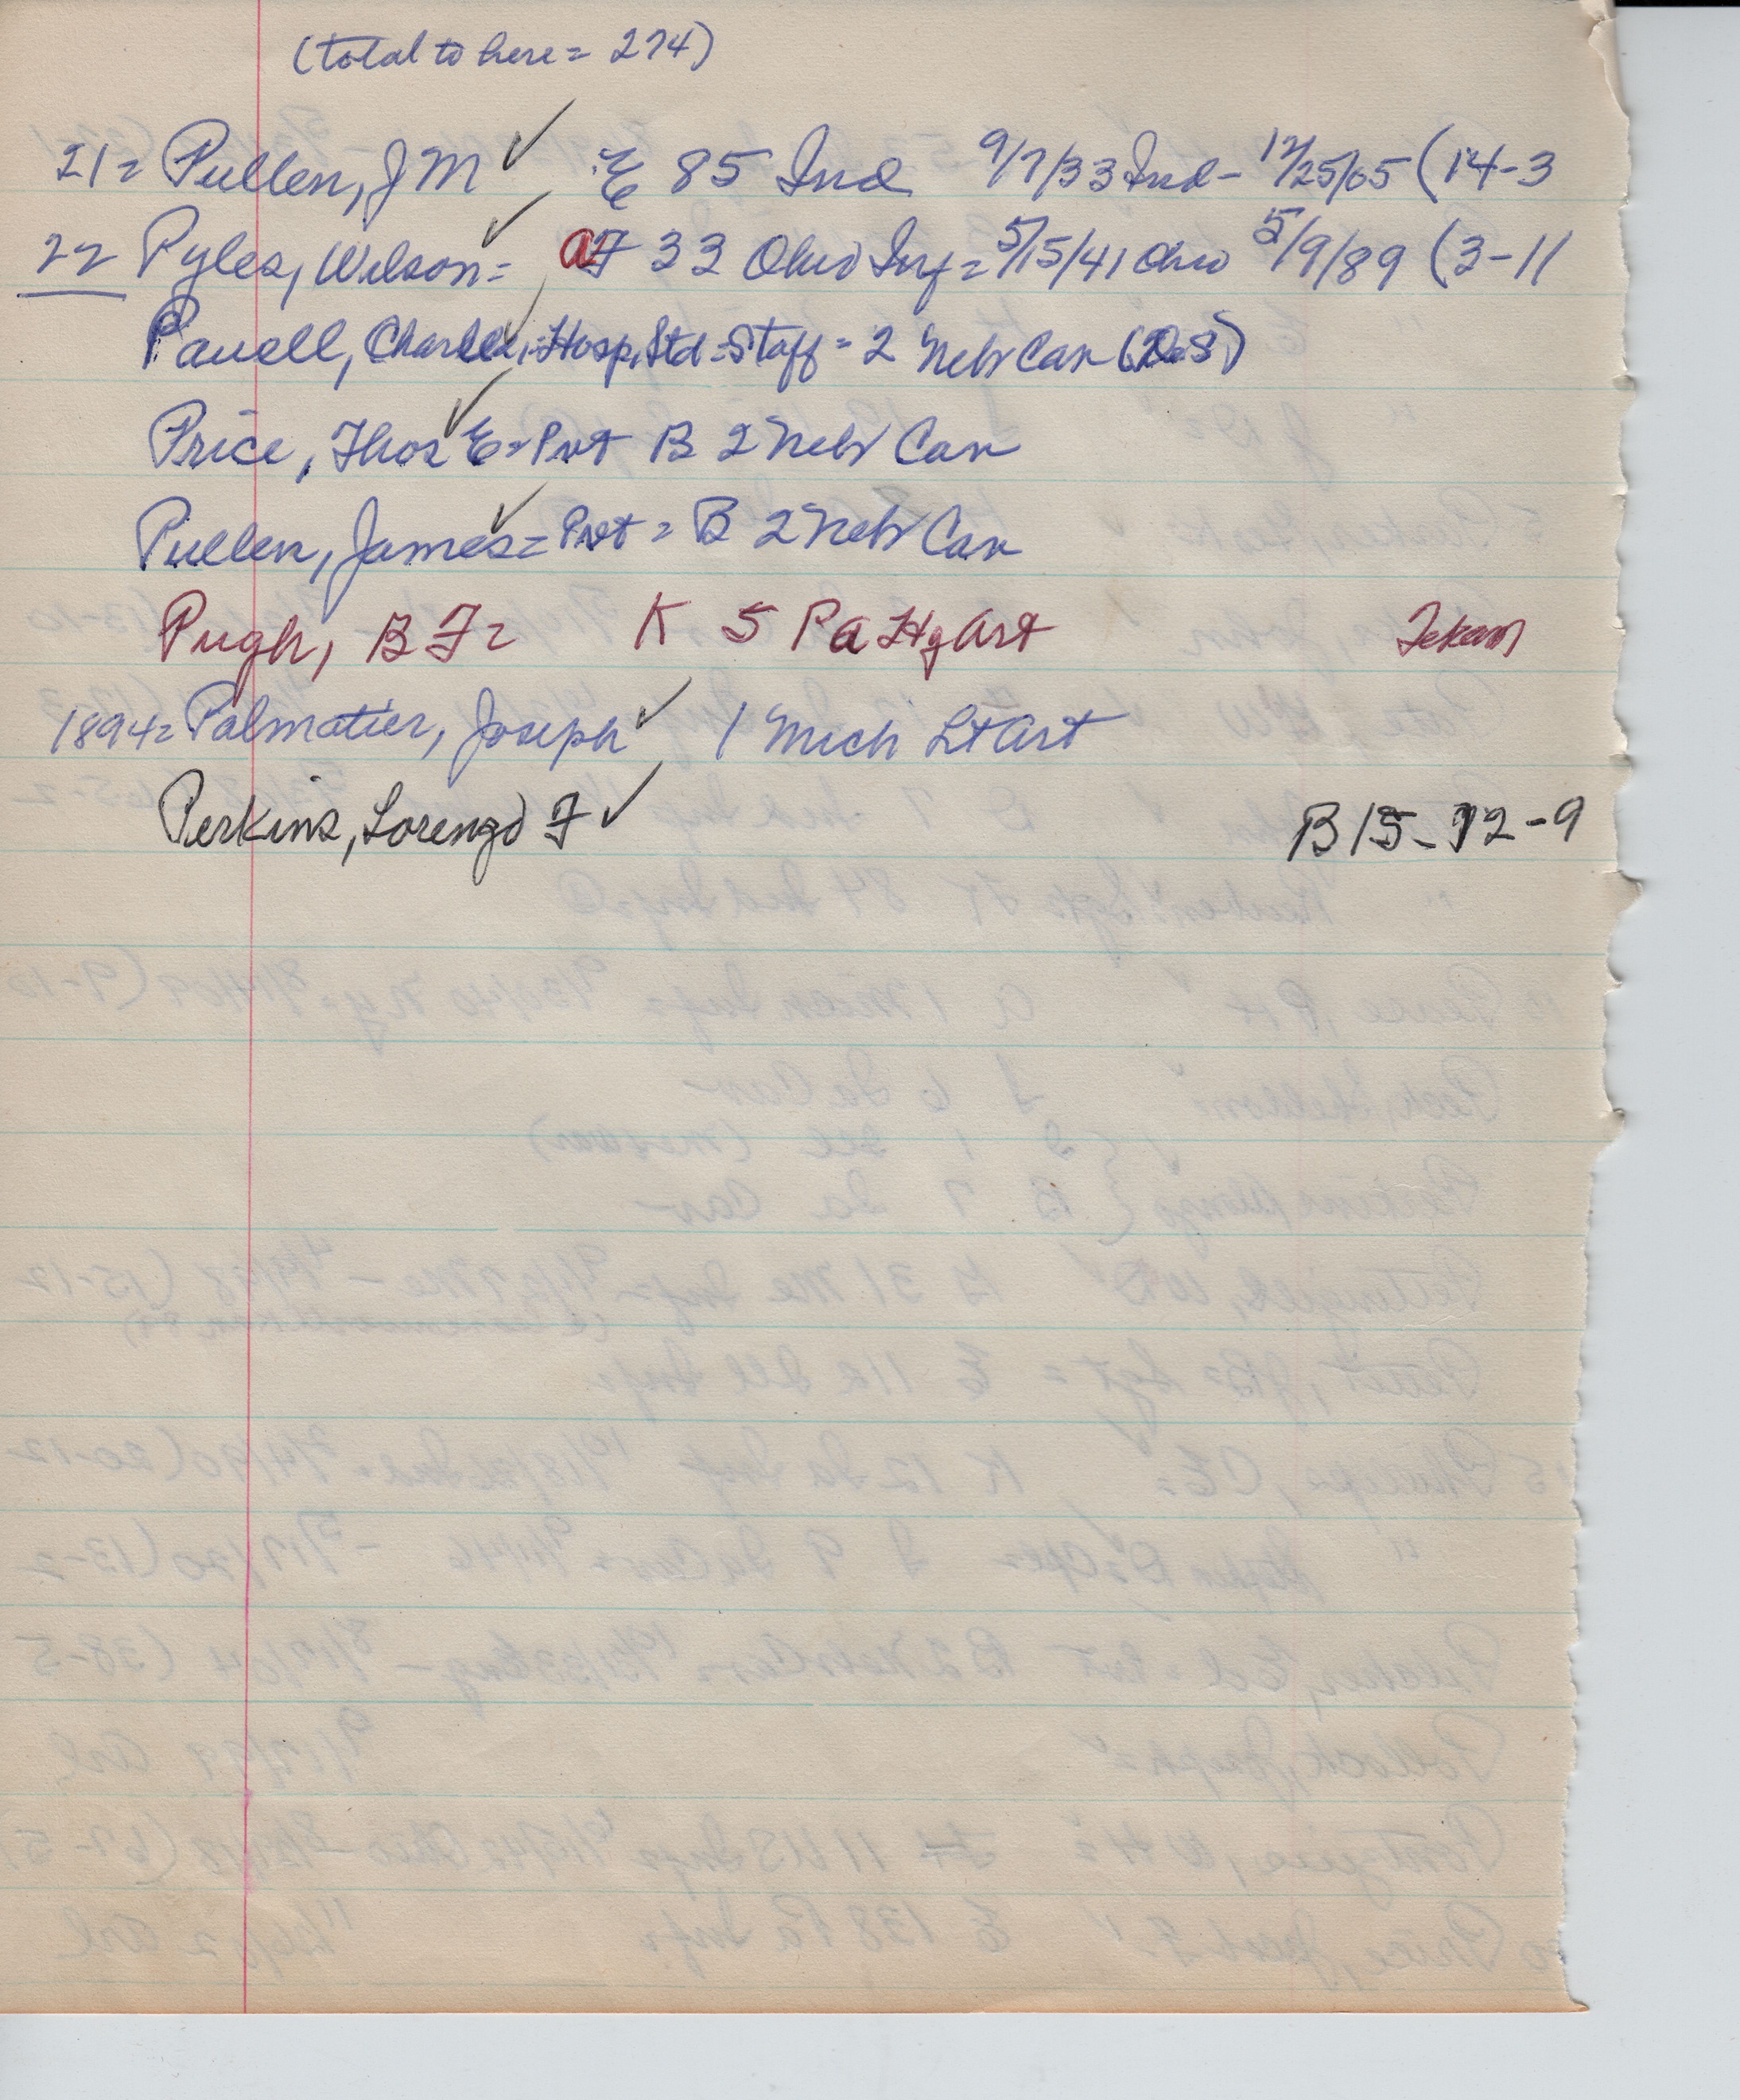 (total to here = 274)
21 = Pullen, J M ✓ E 85 Ind 9/7/33 Ind - 12/25/05 (14-3
22 Pyles, Wilson = ✓ F 33 Ohio Inf = 5/15/41 Ohio 5/9/89 (3-11
Powell, Charles, = Hosp. Std = Staff = 2 Nebr Cav
Price, Thos E = Pvt B 2 Nebr Cav
Pullen, James = Pvt = B 2 Nebr Cav
Pugh, B F = K 5 Pa Hy Art Tekam
1894 = Palmatier, Joseph ✓ 1 Mich Lt Art
Perkins, Lorenzo F ✓ B 15 - 12 - 9